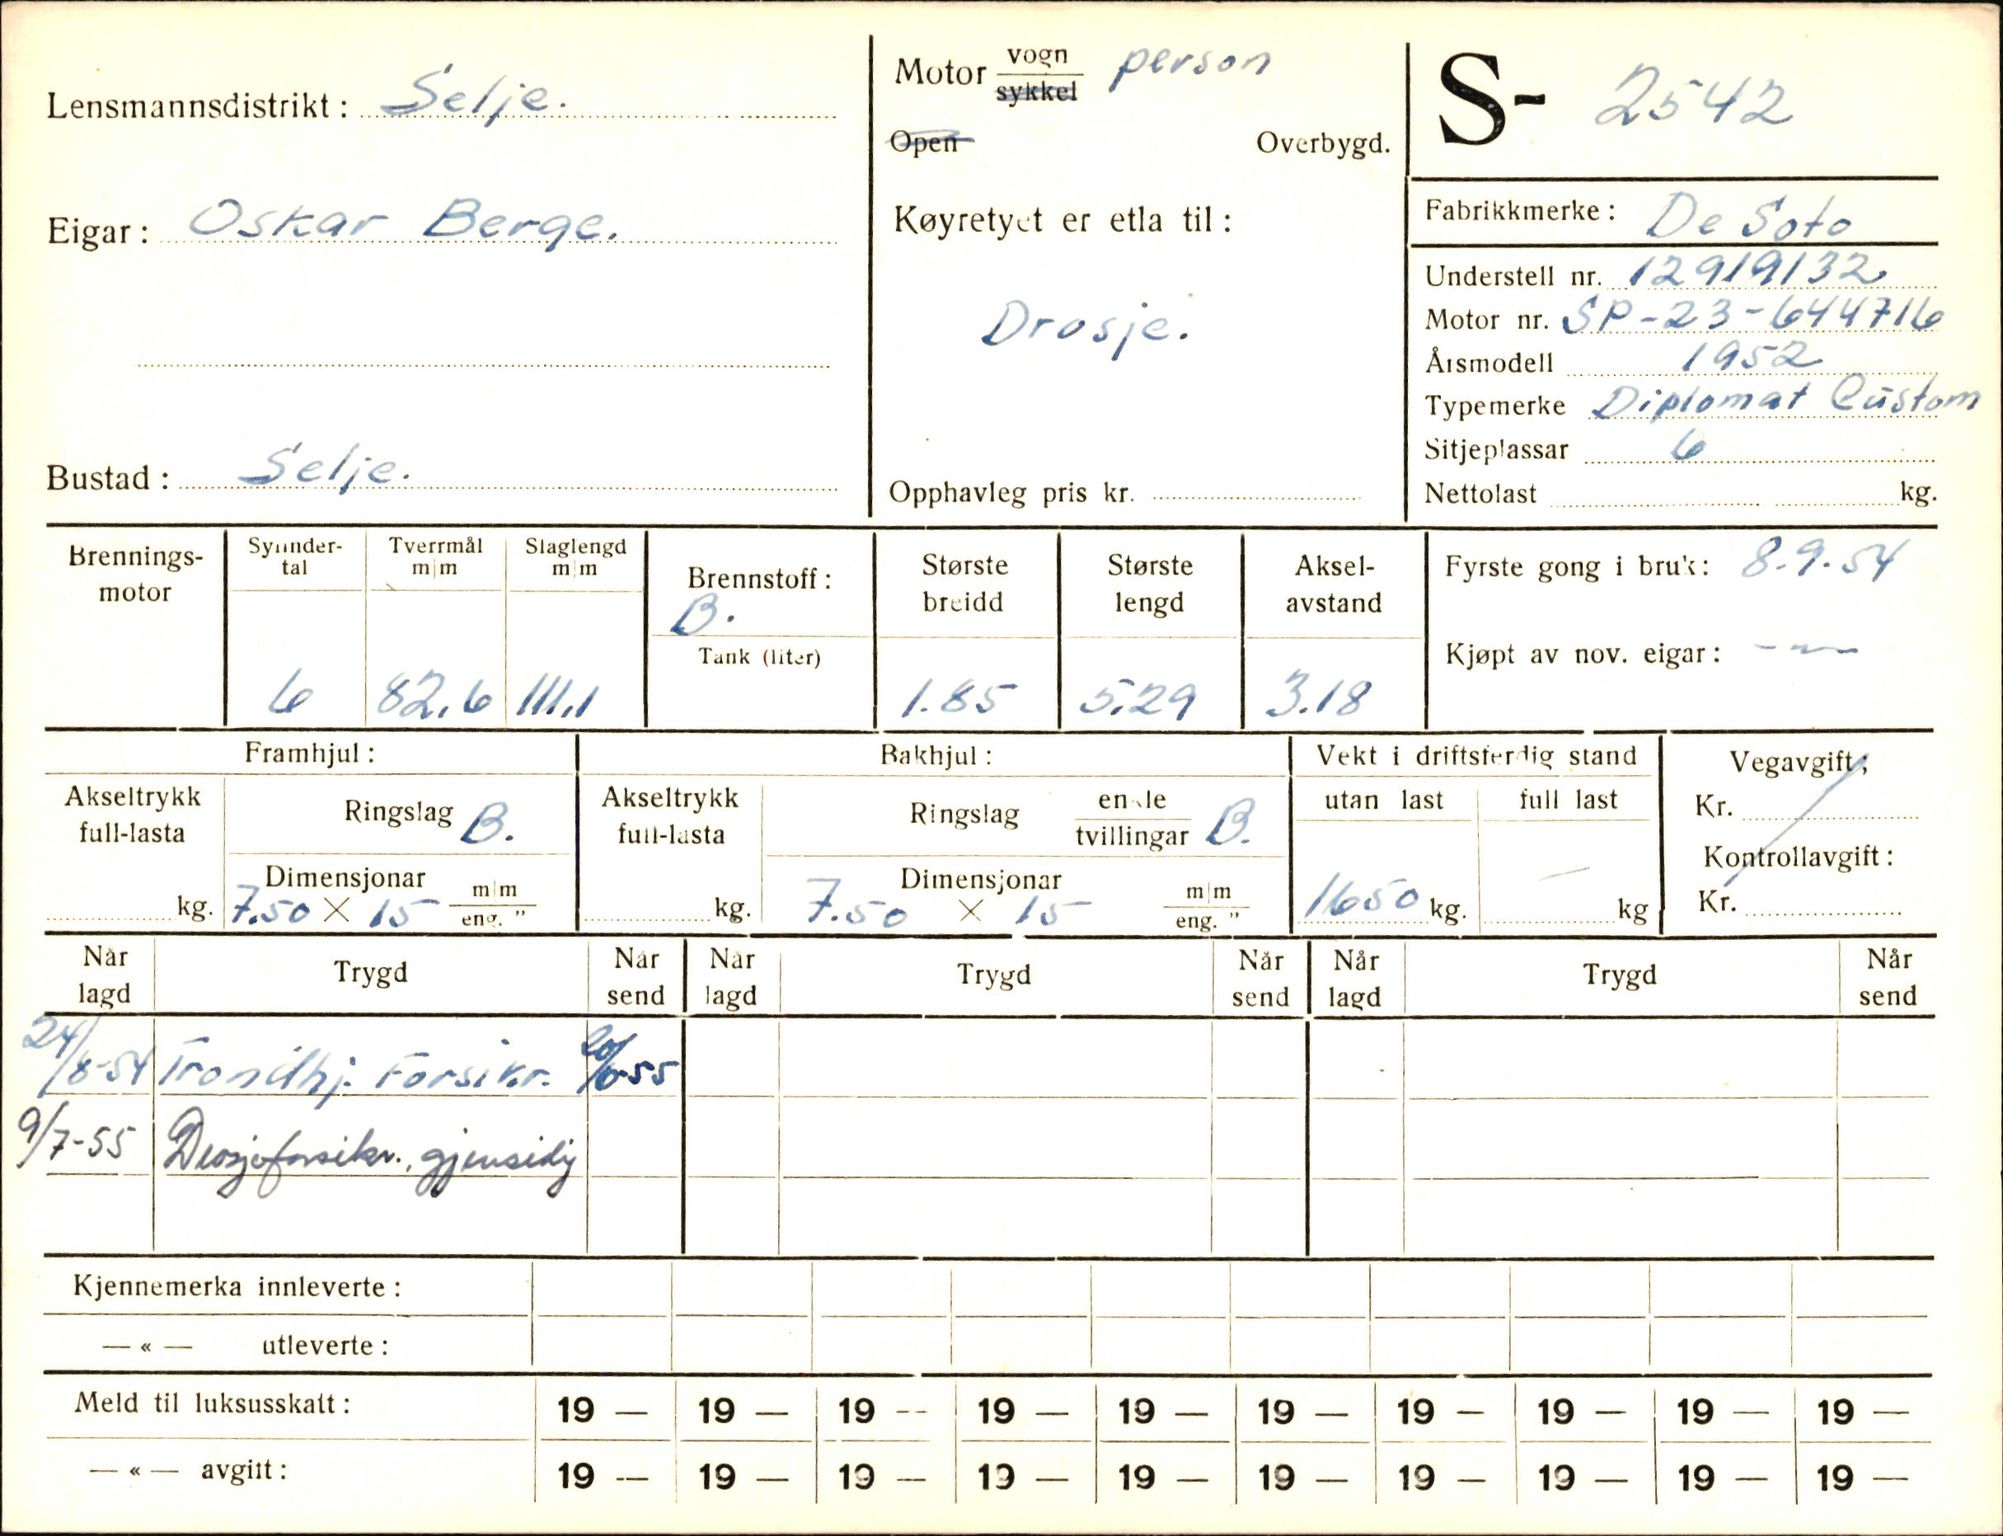 Lensmannsdistrikt: Selje.
Eigar: Oskar Berge.
Bustad: Selje.
Motor vogn person
sykkel
Open Overbygd.
Køyretyet er etla til:
Drosje.
Opphavleg pris kr.
S- 2542
Fabrikkmerke: De Soto
Understell nr. 12919132
Motor nr. SP-23-644716
Årsmodell 1952
Typemerke Diplomat Custom
Sitjeplassar 6
Nettolast kg.
Brennings-
motor
Sylinder-
tal
6
Tverrmål
m/m
82,6
Slaglengd
m/m
111,1
Brennstoff:
B.
Tank (liter)
Største
breidd
1.85
Største
lengd
5.29
Aksel-
avstand
3.18
Fyrste gong i bruk: 8.9.54
Kjøpt av nov. eigar: -~-
Framhjul:
Akseltrykk
full-lasta
kg.
Ringslag B.
Dimensjonar m/m
7.50 × 15 eng. "
Bakhjul:
Akseltrykk
full-lasta
kg.
Ringslag enkle
tvillingar B.
Dimensjonar m/m
7.50 × 15 eng. "
Vekt i driftsferdig stand
utan last full last
1650 kg. — kg
Vegavgift;
Kr.
Kontrollavgift:
Kr.
Når
lagd
Trygd
Når
send
Når
lagd
Trygd
Når
send
Når
lagd
Trygd
Når
send
24/8-54 Trondhj. Forsikr. 20/6-55
9/7-55 Drosjeforsikr., gjensidig
Kjennemerka innleverte:
— « — utleverte:
Meld til luksusskatt: 19 — 19 — 19 — 19 — 19 — 19 — 19 — 19 — 19 — 19 —
— « — avgift: 19 — 19 — 19 — 19 — 19 — 19 — 19 — 19 — 19 — 19 —